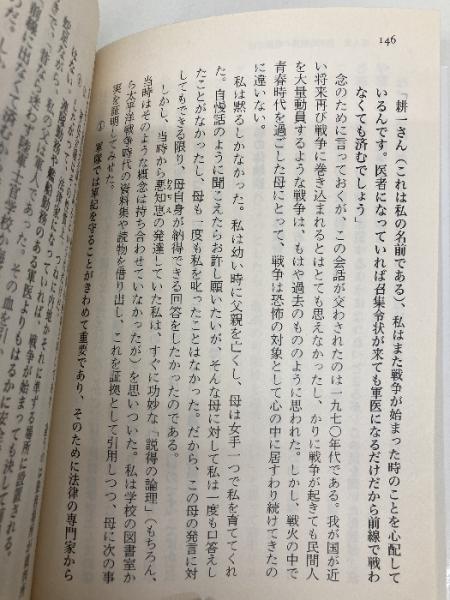 146
「耕一さん（これは私の名前である）、私はまた戦争が始まった時のことを心配して
いるんです。医者になっていれば召集令状が来ても軍医になるだけだから前線で戦わ
なくても済むでしょう」
念のために言っておくが、この会話が交わされたのは一九七〇年代である。我が国が近
い将来再び戦争に巻き込まれるとはとても思えなかったし、かりに戦争が起きても民間人
を大量動員するような戦争は、もはや過去のもののように思われた。しかし、戦火の中で
青春時代を過ごした母にとって、戦争は恐怖の対象として心の中に居すわり続けてきたの
に違いない。
私は黙るしかなかった。私は幼い時に父親を亡くし、母は女手一つで私を育ててくれ
た。自慢話のように聞こえたらお許し願いたいが、そんな母に対して私は一度も口答えし
たことがなかったし、母も一度も私を叱ったことはなかった。だから、この母の発言に対
してもできる限り、母自身が納得できる回答をしたかったのである。
しかし、当時から悪知恵の発達していた私は、すぐに巧妙な「説得の論理」（もちろん、
当時はそのような概念は持ち合わせていなかったが）を思いついた。私は学校の図書室か
ら太平洋戦争時代の資料集や読物を借り出し、これを証拠として引用しつつ、母に次の事
実を証明してみせた。
① 軍隊では軍紀を守ることがきわめて重要であり、そのために法律の専門家から